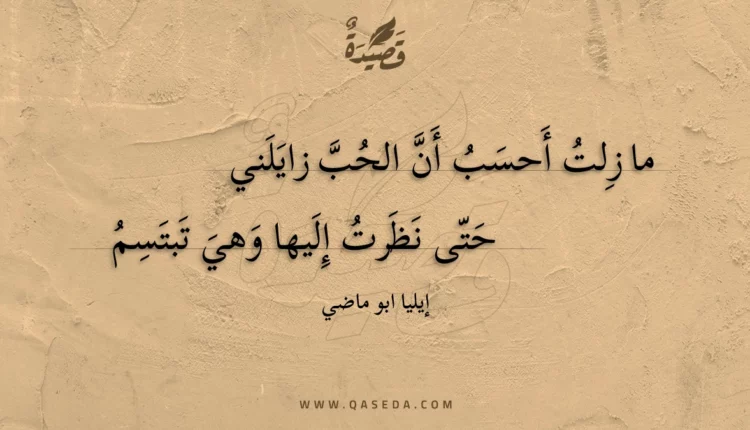 قَصِيْدَةٌ
ما زِلتُ أَحسَبُ أَنَّ الحُبَّ زايَلَني
حَتّى نَظَرتُ إِلَيها وَهيَ تَبتَسِمُ
إيليا ابو ماضي
WWW.QASEDA.COM